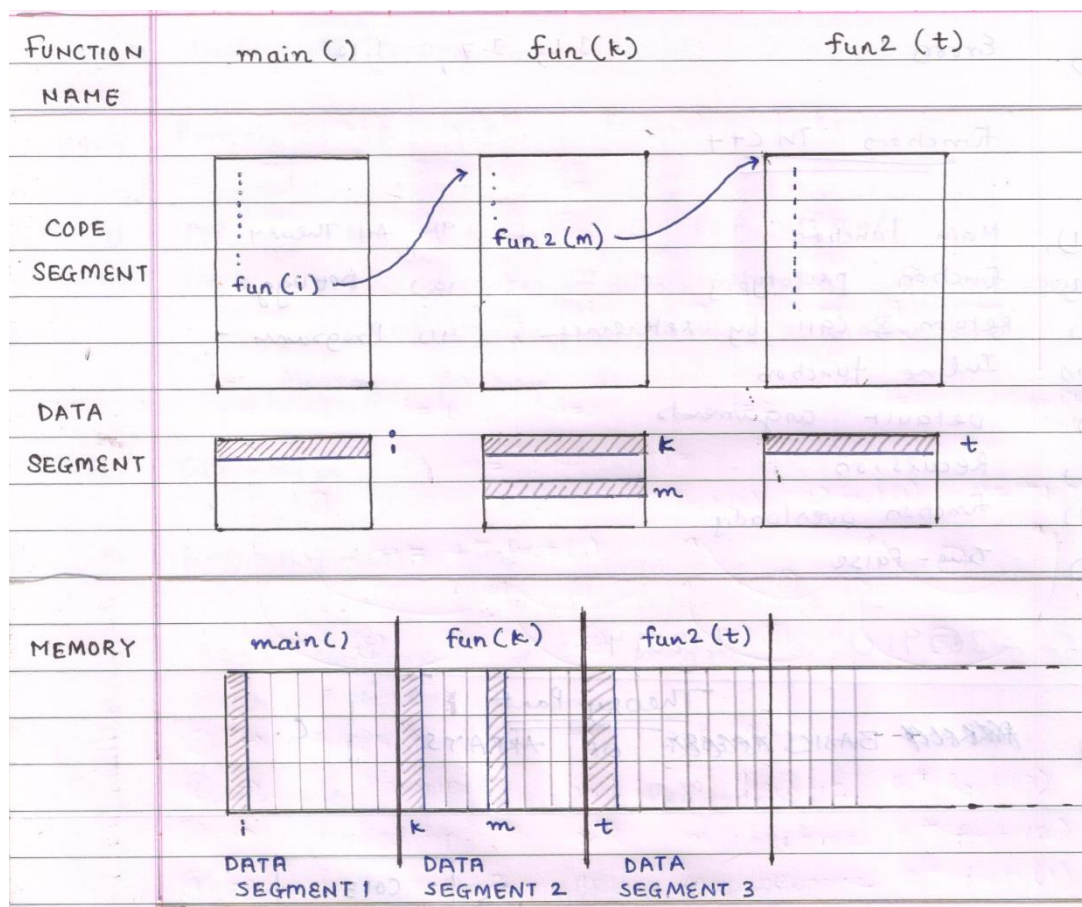 FUNCTION main() fun(k) fun2 (t)
NAME
CODE
SEGMENT
fun(i)
fun2(m)
DATA
SEGMENT
i
k
m
t
MEMORY main() fun(k) fun2(t)
i k m t
DATA SEGMENT 1
DATA SEGMENT 2
DATA SEGMENT 3